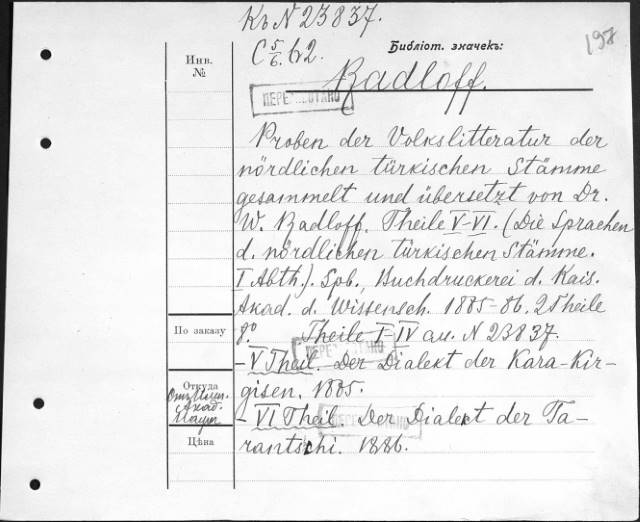 Къ N 23837.
С 5/6. б2.
Библіот. значекъ:
198
Инв.
№
Radloff.
Proben der Volkslitteratur der
nördlichen türkischen Stämme
gesammelt und übersetzt von Dr.
W. Radloff. Theile V-VI. (Die Sprachen
d. nördlichen türkischen Stämme.
I Abth.). Spb., Buchdruckerei d. Kais.
Akad. d. Wissensch. 1885-86. 2 Theile
По заказу
8.° Theile I-IV см. N 23837.
- V Theil. Der Dialekt der Kara-Kir-
Откуда
Отъ Имп.
Акад.
Наукъ
gisen. 1885.
- VI Theil. Der Dialekt der Ta-
Цѣна
rantschi. 1886.